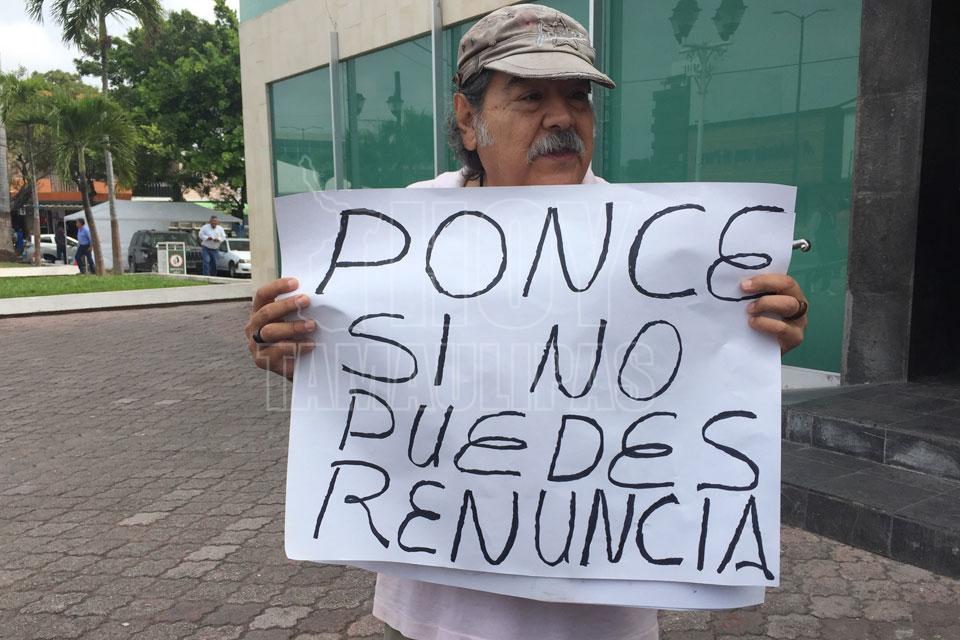 PONCE
SI NO
PUEDES
RENUNCIA
HOY
TAMAULIPAS